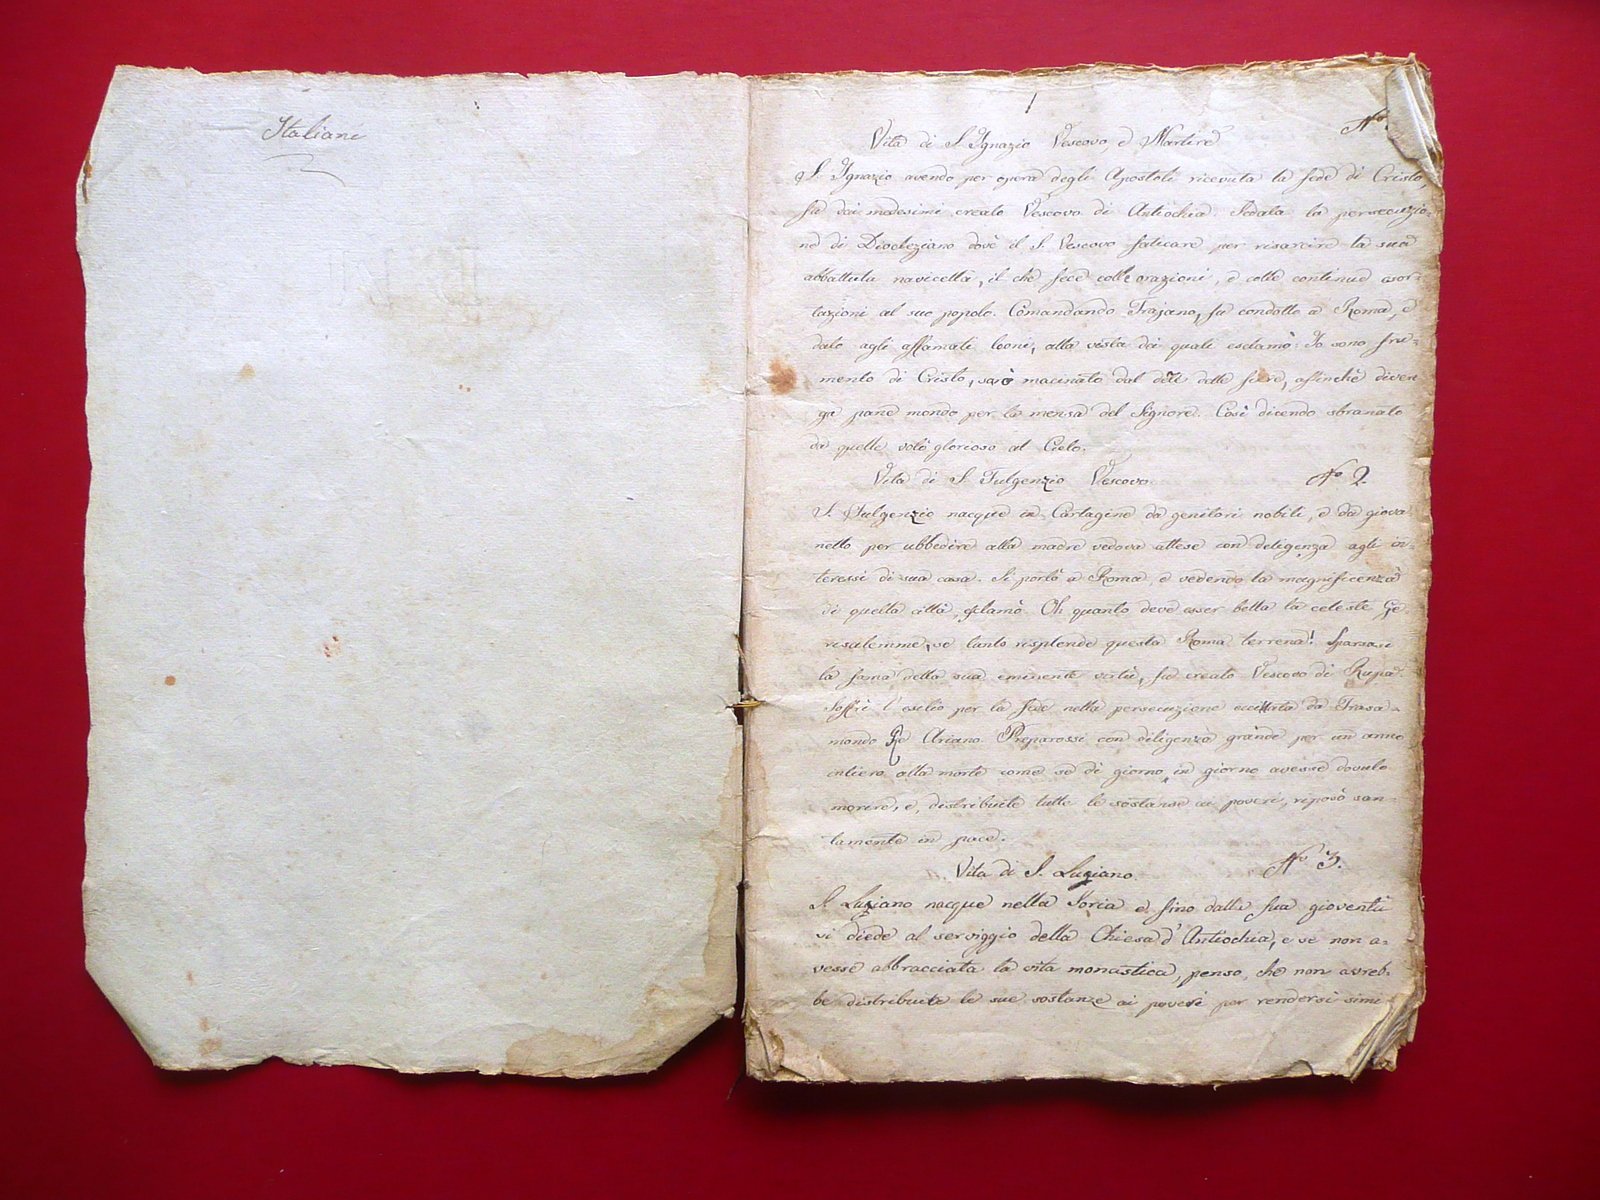 Italiane
Vita di S. Ignazio Vescovo, e Martire
Nº.
S. Ignazio avendo per opera degli Apostoli ricevuta la fede di Cristo,
fu dai medesimi creato Vescovo di Antiochia. Sedata la persecuzio=
ne di Diocleziano dovè il S. Vescovo faticare per risarcire la sua
abbattuta navicella, il che fece colle orazioni, e colle continue esor=
tazioni al suo popolo. Comandando Trajano, fu condotto a Roma, e
dato agli affamati leoni, alla vista dei quali esclamò: Io sono fru=
mento di Cristo, sarò macinato dal dente delle fiere, affinchè diven
ga pane mondo per la mensa del Signore. Così dicendo sbranato
da quelle volò glorioso al Cielo.
Vita di S. Fulgenzio Vescovo. Nº 2.
S. Fulgenzio nacque in Cartagine da genitori nobili, e da giova
netto per ubbidire alla madre vedova attese con diligenza agli in=
teressi di sua casa. Si portò a Roma, e vedendo la magnificenza
di quella città, esclamò. Oh quanto deve esser bella la celeste Ge
rusalemme, se tanto risplende questa Roma terrena! Sparsasi
la fama della sua eminente virtù, fu creato Vescovo di Ruspa.
Soffrì l'esilio per la Fede nella persecuzione eccitata da Trasa=
mondo Re Ariano. Preparossi con diligenza grande per un anno
intiero alla morte come se di giorno, in giorno avesse dovuto
morire, e, distribuite tutte le sostanze ai poveri, riposò san=
tamente in pace.
Vita di S. Luziano. Nº 3.
S. Luziano nacque nella Soria e fino dalla sua gioventù
si diede al serviggio della Chiesa d'Antiochia, e se non a=
vesse abbracciata la vita monastica, penso, che non avreb=
be distribuite le sue sostanze ai poveri per rendersi simi